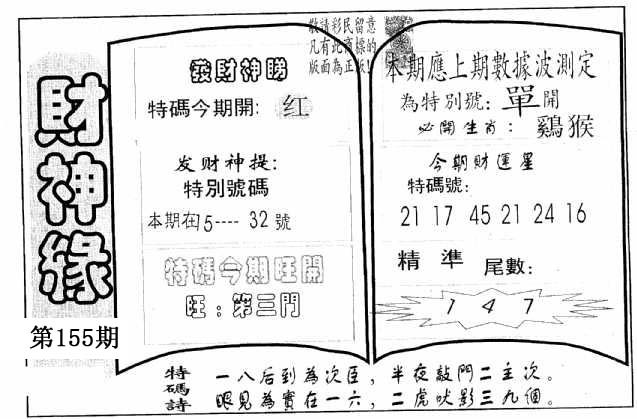 敬請彩民留意
凡有此商標的
版面為正版!
財神緣
第155期
發財神睇
特碼今期開: 红
发财神提:
特別號碼
本期在5----32號
特碼今期旺開
旺:第三門
本期應上期數據波測定
為特別號:單開
必開生肖:鷄猴
今期財運星
特碼號:
21 17 45 21 24 16
精準 尾數:
1 4 7
特碼詩
一八后到為次臣,半夜敲門二主次。
眼見為實在一六,二虎吠影三九個。